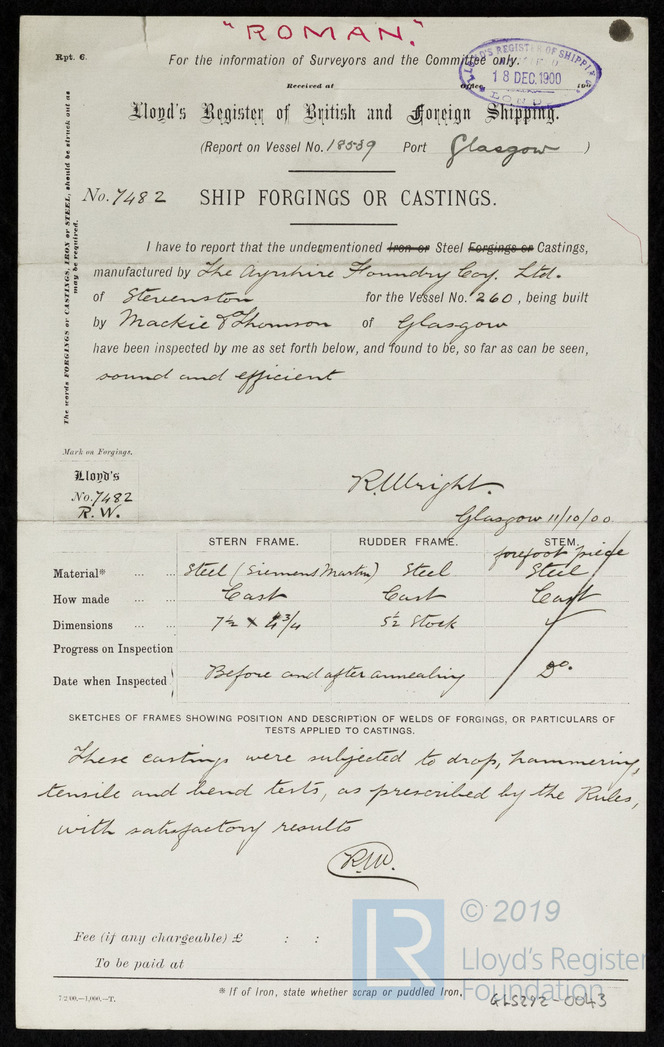 "ROMAN."
Rpt. 6.
For the information of Surveyors and the Committee only.
LLOYD'S REGISTER OF SHIPPING
18 DEC. 1900
LONDON
Received at Office 190
Lloyd's Register of British and Foreign Shipping.
(Report on Vessel No. 18539 Port Glasgow )
No. 7482 SHIP FORGINGS OR CASTINGS.
The words FORGINGS or CASTINGS, IRON or STEEL, should be struck out as
may be required.
I have to report that the undermentioned Iron or Steel Forgings or Castings,
manufactured by The Ayrshire Foundry Coy. Ltd.
of Stevenston for the Vessel No. 260, being built
by Mackie & Thomson of Glasgow
have been inspected by me as set forth below, and found to be, so far as can be seen,
sound and efficient
Mark on Forgings.
Lloyd's
No. 7482
R. W.
R. Wright.
Glasgow 11/10/00
STERN FRAME. RUDDER FRAME. STEM.
forefoot piece
Material* ... ... Steel (Siemens Martin) Steel Steel
How made ... ... Cast Cast Cast
Dimensions ... ... 7½ x 4¾ 5½ Stock
Progress on Inspection
Date when Inspected Before and after annealing Do.
SKETCHES OF FRAMES SHOWING POSITION AND DESCRIPTION OF WELDS OF FORGINGS, OR PARTICULARS OF
TESTS APPLIED TO CASTINGS.
These castings were subjected to drop, hammering,
tensile and bend tests, as prescribed by the Rules,
with satisfactory results
R.W.
Fee (if any chargeable) £ : :
To be paid at
* If of Iron, state whether scrap or puddled Iron.
7/2/00.—1,000.—T.
GLS292-0043
LR
© 2019
Lloyd's Register
Foundation